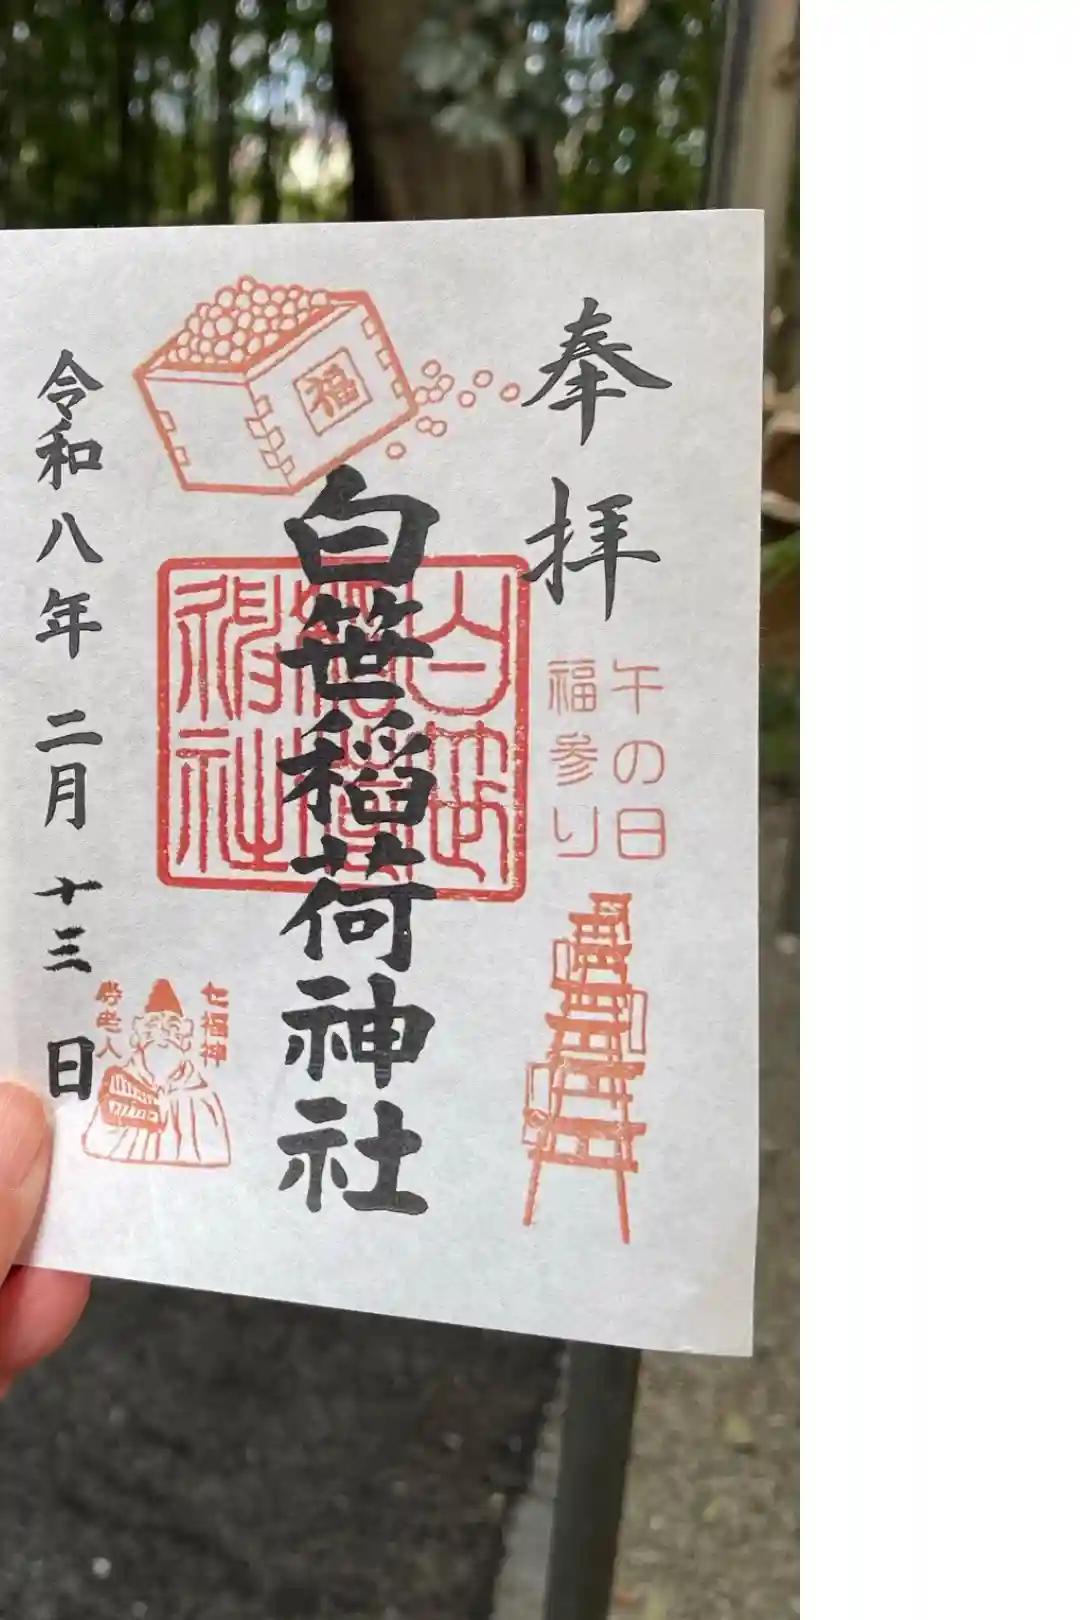 奉拝
午の日
福参り
福
白笹稲荷神社
白笹
稲荷
神社
七福神
寿老人
令和八年二月十三日